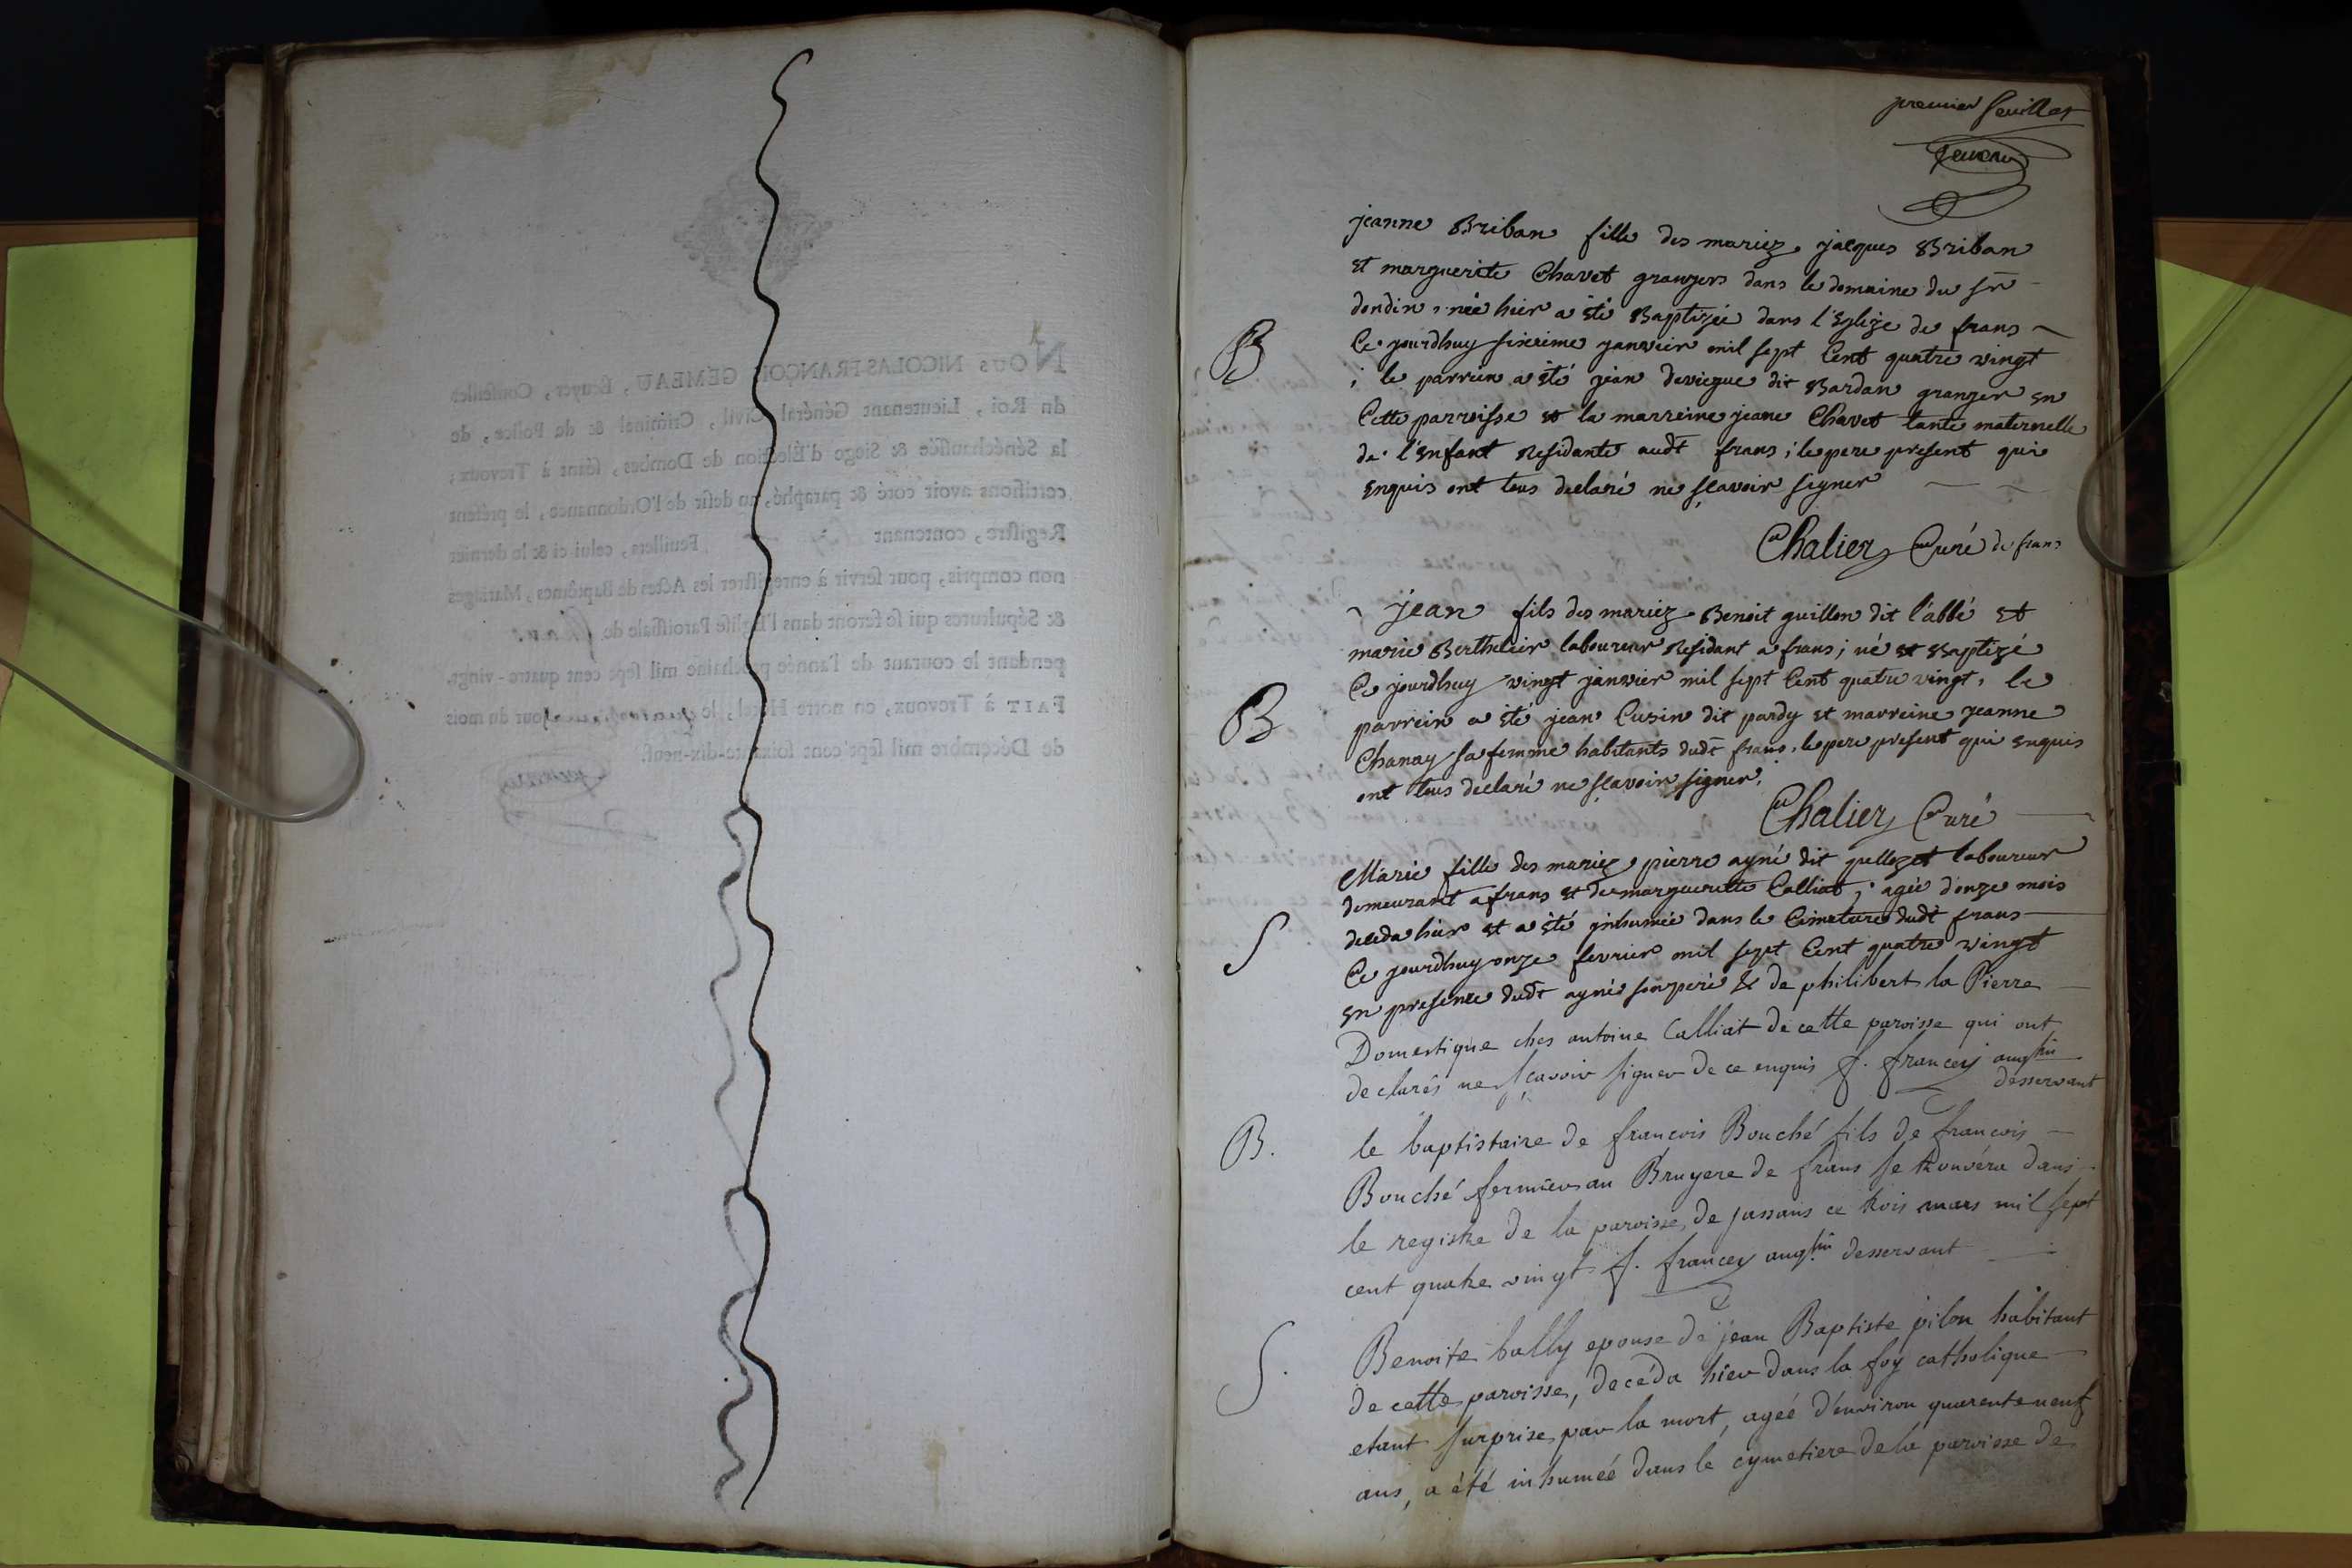 premier feuillet
jeanne Briban fille des mariez jacques Briban
et marguerite Chavet grangers dans le domaine du sr
dondin, née hier a été Baptizée dans l'Eglize de frans
B
Ce jourdhuy sixieme janvier mil sept Cent quatre vingt
; le parrein a été jean deviegue dit Bardan granger en
Cette parroisse et la marreine jeane Chavet tante maternelle
de l'enfant Residante audt frans; le pere present qui
enquis ont tous declaré ne sçavoir signer
Chalier Curé de frans
jean fils des mariez Benoit guillon dit l'abbé et
marie Berthelier laboureur Residant a frans; né et Baptizé
Ce jourdhuy vingt janvier mil sept Cent quatre vingt, le
B
parrein a été jean Cusin dit pardy et marreine jeanne
Chanay sa femme habitants dudt frans, le pere present qui enquis
ont tous declaré ne sçavoir signer,
Chalier Curé
Marie fille des mariez pierre ayné dit quellozet laboureur
demeurant a frans et de marguerite Calliat; agée d'onze mois
S
deceda hier et a été inhumée dans le Cimetiere dudt frans
Ce jourdhuy onze fevrier mil sept Cent quatre vingt
en presence dudt ayné son pere & de philibert la Pierre
Domestique ches antoine Calliat de cette paroisse qui ont
declarés ne sçavoir signer de ce enquis f. francey augtin
desservant
B.
le baptistaire de francois Bouché fils de francois
Bouché fermier au Bruyere de frans se trouvera dans
le registre de la paroisse de jassans ce trois mars mil sept
cent quatre vingt f. francey augtin desservant
S.
Benoite bally epouse de jean Baptiste pilon habitant
de cette paroisse, decéda hier dans la foy catholique
etant surprise par la mort, ageé d'environ quarente neuf
ans, a été inhumeé dans le cymetiere de la paroisse de
Nous NICOLAS-FRANÇOIS GEMEAU, Ecuyer, Conseiller
du Roi, Lieutenant Général Civil, Criminel & de Police, de
la Sénéchaussée & Siege d'Election de Dombes, séant à Trevoux;
certifions avoir coté & paraphé, au desir de l'Ordonnance, le présent
Registre, contenant Feuillets, celui ci & le dernier
non compris, pour servir à enregistrer les Actes de Baptêmes, Mariages
& Sépultures qui se feront dans l'Eglise Paroissiale de frans.
pendant le courant de l'année prochaine mil sept cent quatre-vingt.
FAIT à Trevoux, en notre Hôtel, le jour du mois
de Décembre mil sept cent soixante-dix-neuf.